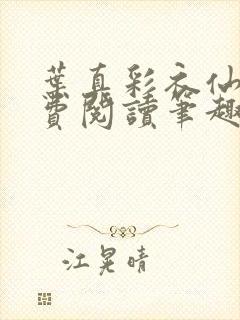 葉真彩衣仙
費閱讀筆趣
江晃晴